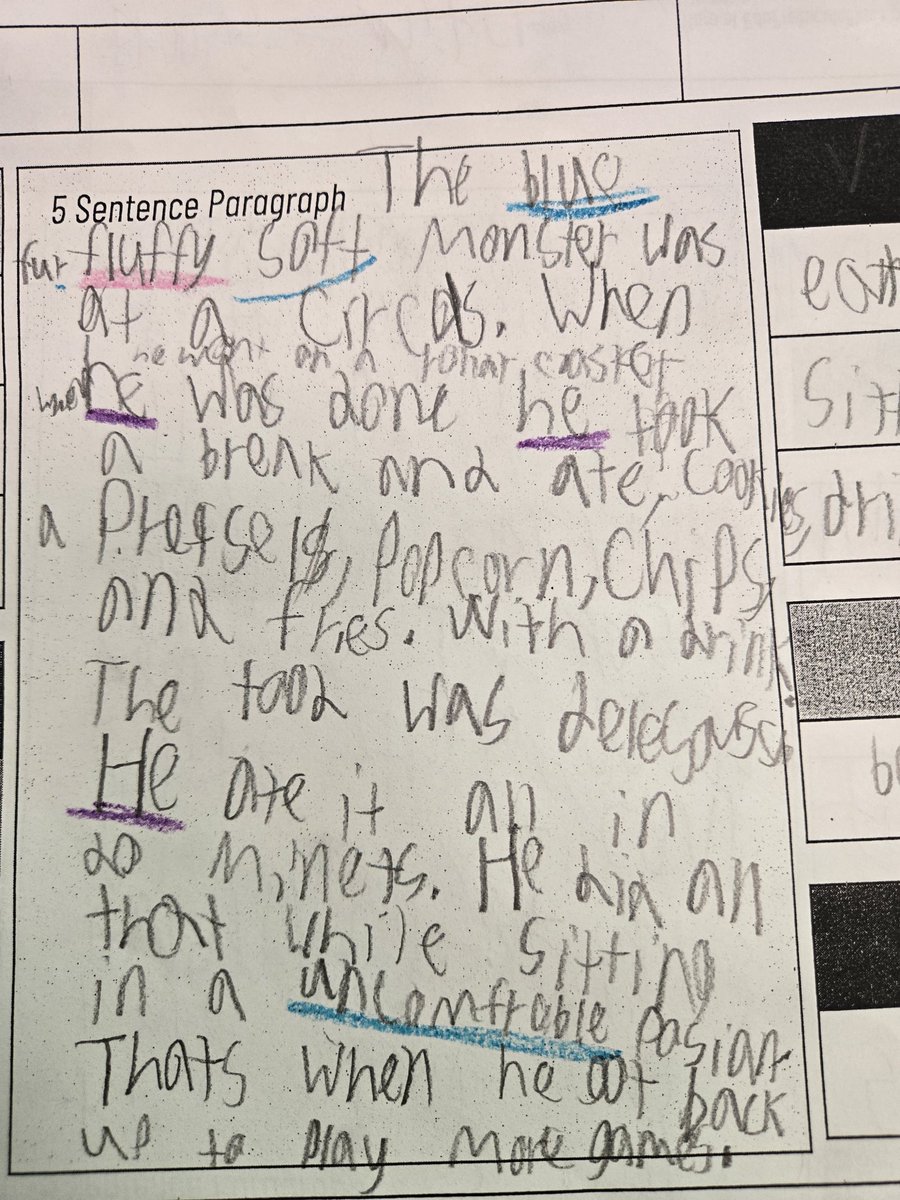 5 Sentence Paragraph The blue
fur fluffy soft Monster was
at a Circas. When
he went on a rohar coaster
when he was done he took
a break and ate, cookies,
a Pretsels, Popcorn, Chips,
and fries. With a drink.
The food was delegass.
He ate it all in
20 Minets. He did all
that while sitting
in a uncomftable pasian
Thats when he got back
up to play more games.
eat
Sitt
dri